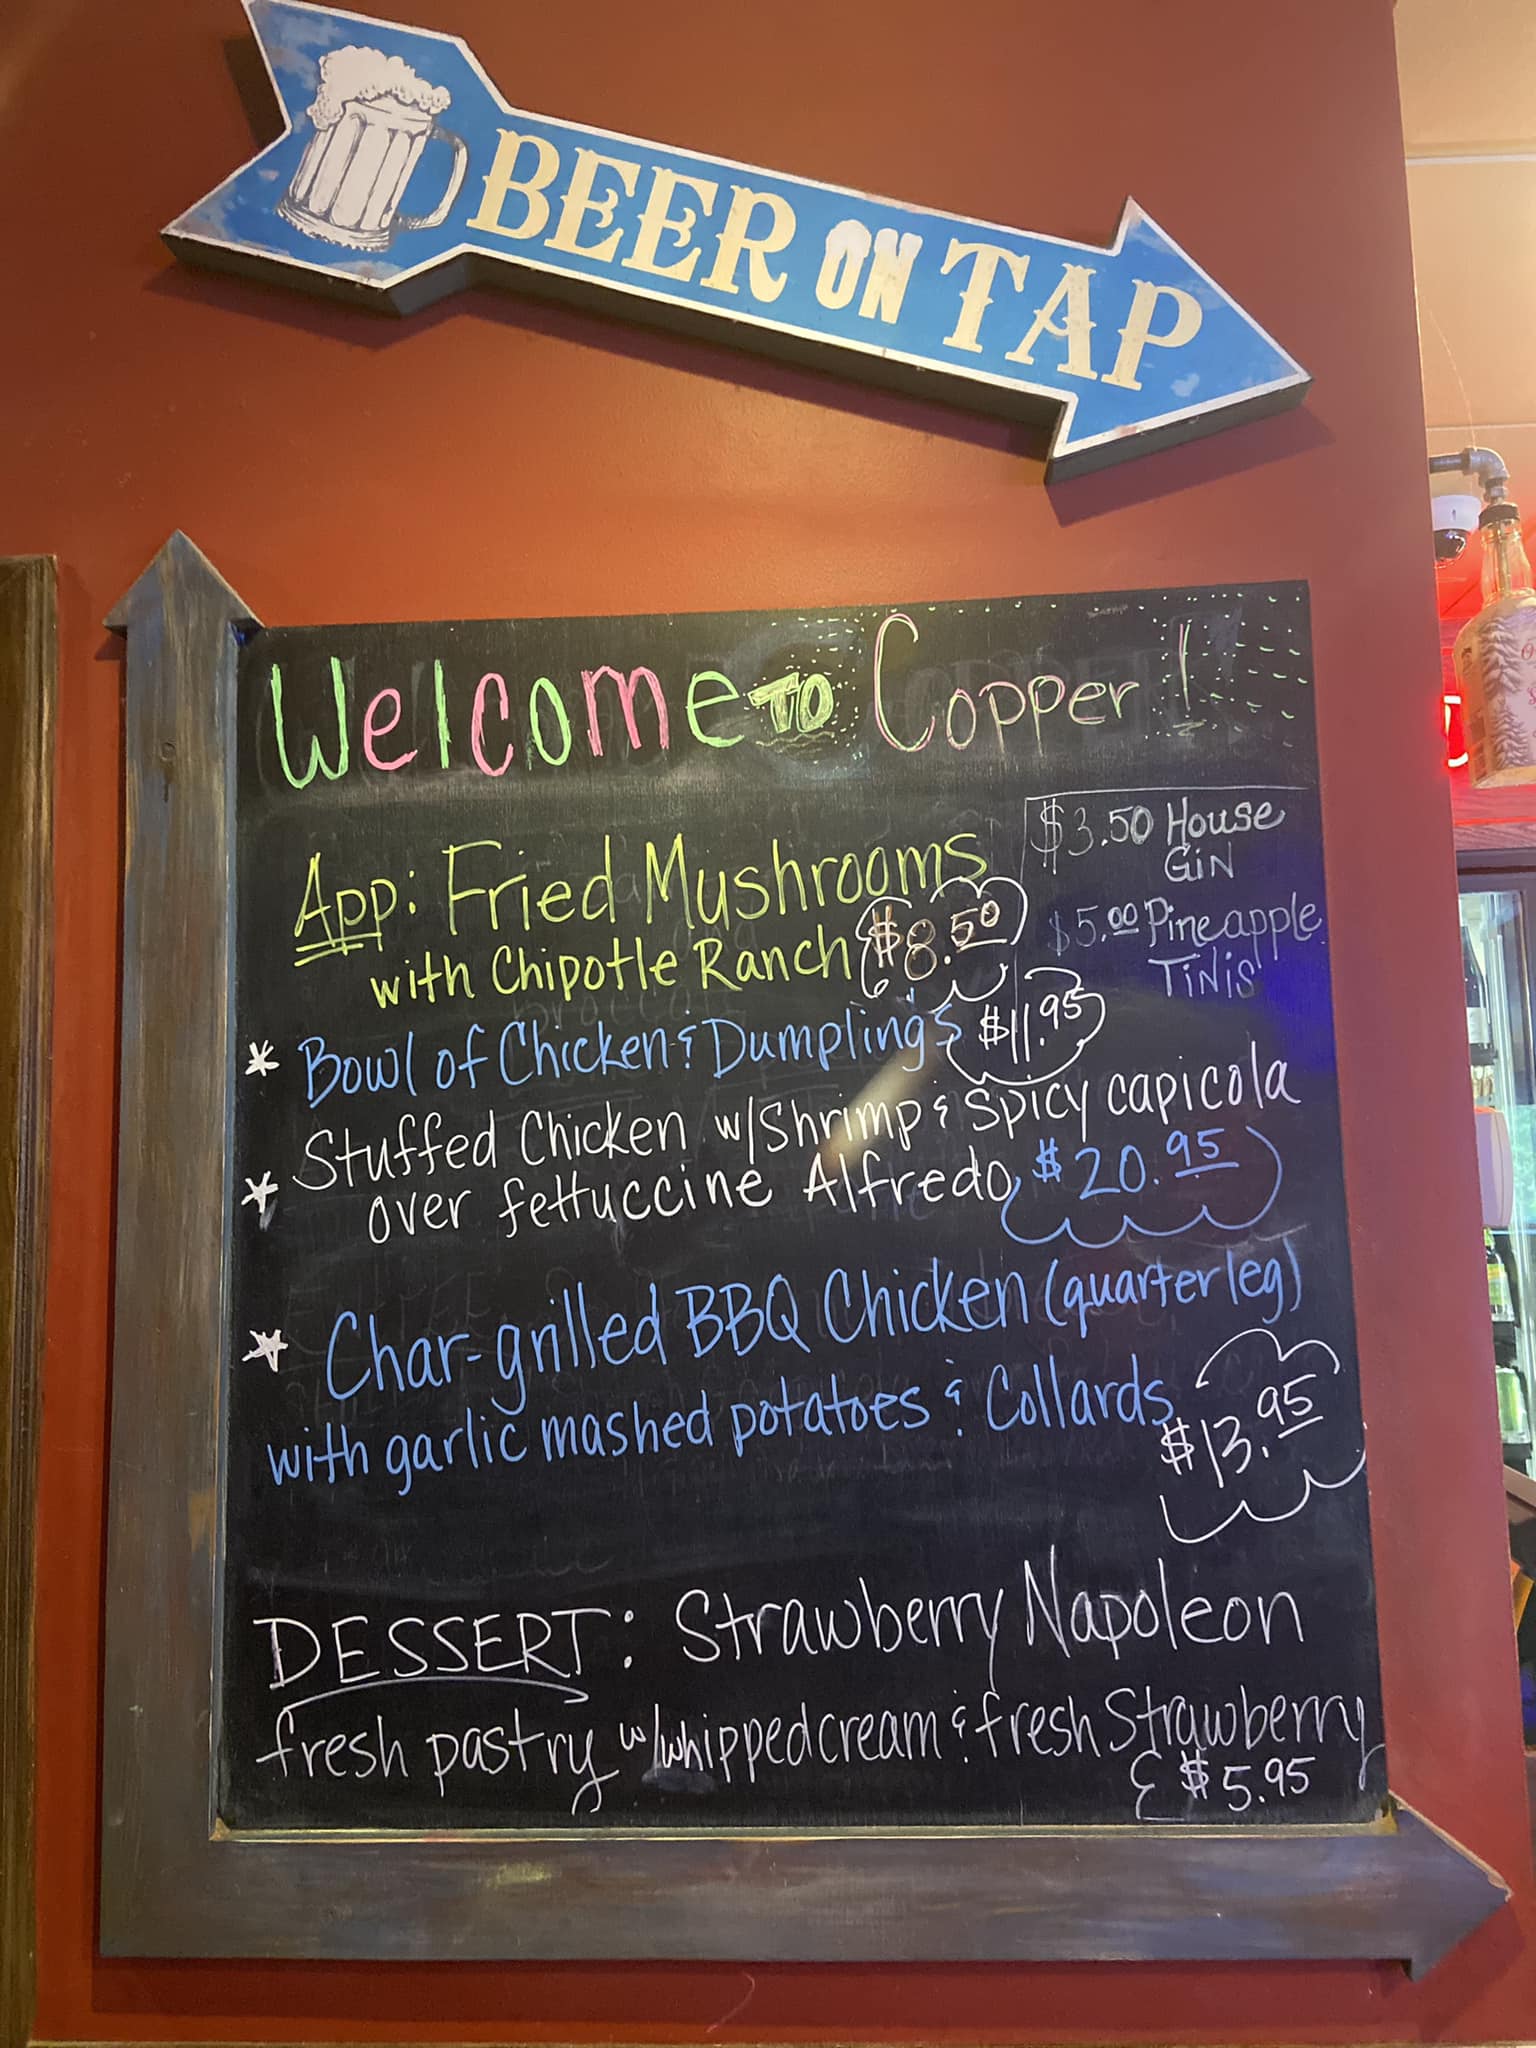 BEER ON TAP
Welcome TO Copper!
$3.50 House
GIN
App: Fried Mushrooms
with Chipotle Ranch $8.50
$5.00 Pineapple
TINIS
* Bowl of Chicken & Dumplings $11.95
* Stuffed Chicken w/Shrimp & Spicy capicola
over fettuccine Alfredo $20.95
* Char-grilled BBQ Chicken (quarter leg)
with garlic mashed potatoes & Collards
$13.95
DESSERT: Strawberry Napoleon
fresh pastry w/whipped cream & fresh Strawberry
$5.95